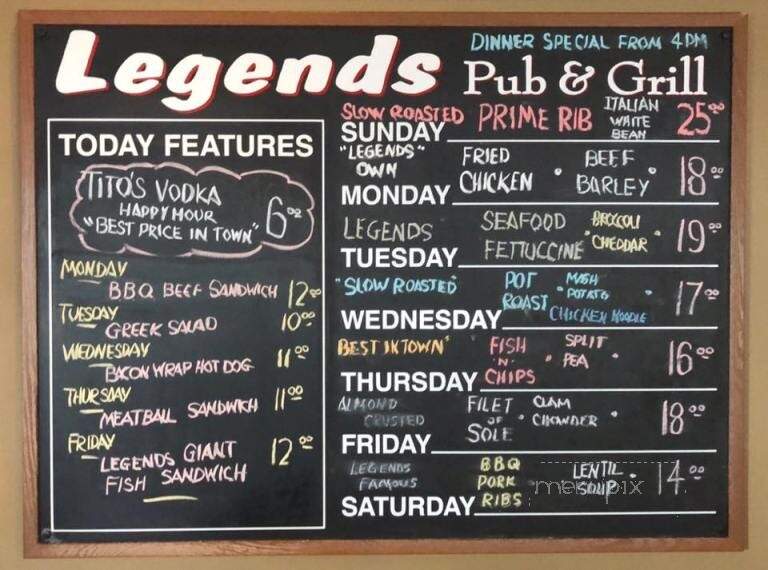 DINNER SPECIAL FROM 4PM
Legends Pub & Grill
TODAY FEATURES
TITO'S VODKA
HAPPY HOUR
"BEST PRICE IN TOWN" 6.00
MONDAY
BBQ BEEF SANDWICH 12.00
TUESDAY
GREEK SALAD 10.00
WEDNESDAY
BACON WRAP HOT DOG 11.00
THURSDAY
MEATBALL SANDWICH 11.00
FRIDAY
LEGENDS GIANT 12.00
FISH SANDWICH
SLOW ROASTED PRIME RIB ITALIAN WHITE BEAN 25.00
SUNDAY
"LEGENDS" OWN FRIED CHICKEN • BEEF BARLEY • 18.00
MONDAY
LEGENDS SEAFOOD FETTUCCINE • BROCCOLI CHEDDAR • 19.00
TUESDAY
"SLOW ROASTED" POT ROAST • MASH POTATO • CHICKEN NOODLE 17.00
WEDNESDAY
BEST IN TOWN" FISH 'N' CHIPS • SPLIT PEA • 16.00
THURSDAY
ALMOND CRUSTED FILET OF SOLE • CLAM CHOWDER • 18.00
FRIDAY
LEGENDS FAMOUS BBQ PORK RIBS LENTIL SOUP • 14.00
SATURDAY
menupix